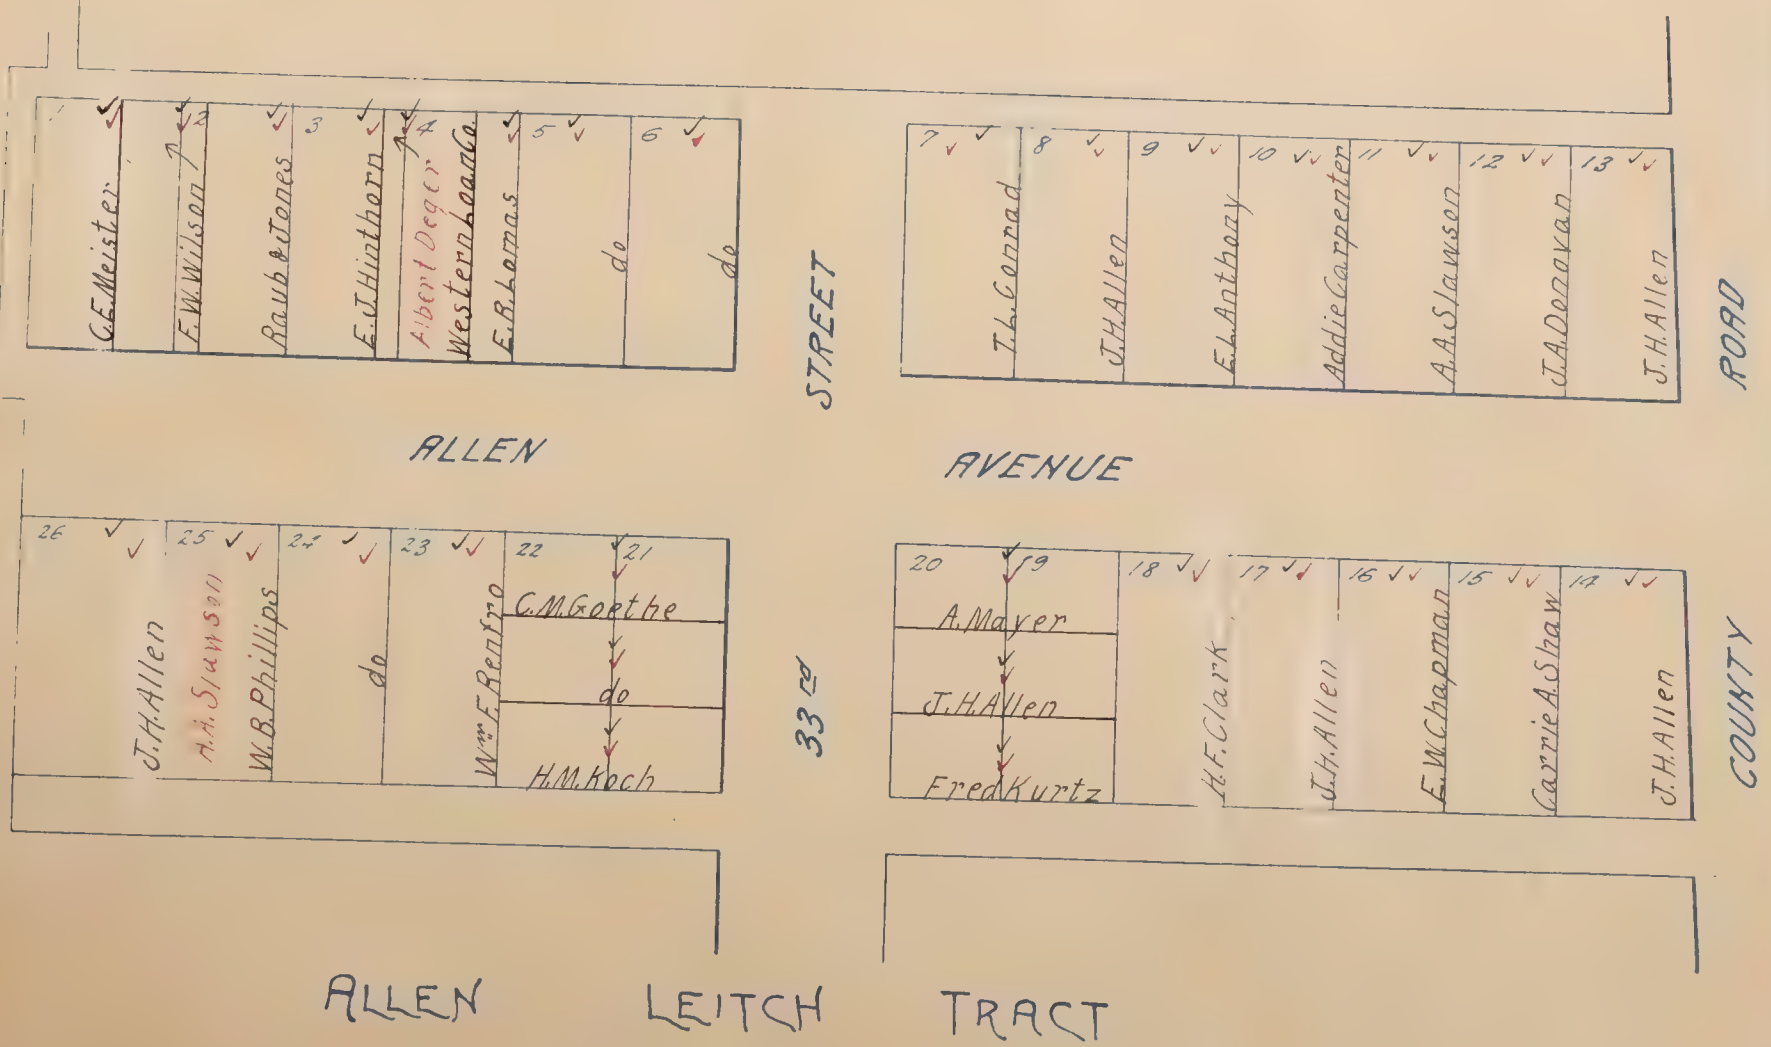 1
C.E.Meister
2
F.W.Wilson
Raub & Jones
3
E.J.Hinthorn
4
Albert Deger
Western Loan Co.
5
E.R.Lomas
do
6
do
7
T.L.Conrad
8
J.H.Allen
9
E.L.Anthony
10
Addie Carpenter
11
A.A.Slawson
12
J.A.Donovan
13
J.H.Allen
STREET
ROAD
ALLEN AVENUE
26
J.H.Allen
25
A.A.Slawson
24
W.B.Phillips
do
23
Wm F. Rentro
22 21
C.M.Goethe
do
H.M.Koch
33rd
20 19
A.Mayer
J.H.Allen
Fred Kurtz
18
H.F.Clark
17
J.H.Allen
16
E.W.Chapman
15
Carrie A.Shaw
14
J.H.Allen
COUNTY
ALLEN LEITCH TRACT